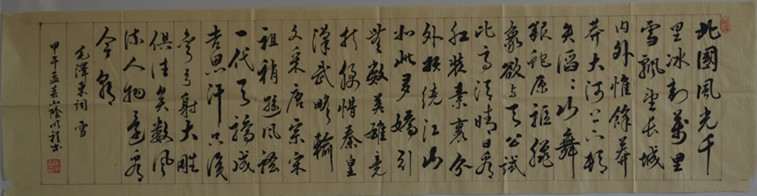 北國風光千
里冰封萬里
雪飄望長城
内外惟餘莽
莽大河上下頓
失滔〻山舞
銀蛇原馳臘
象欲与天公試
比高須晴日看
紅裝素裹分
外妖嬈江山
如此多嬌引
無數英雄競
折腰惜秦皇
漢武略輸
文采唐宗宋
祖稍遜風騷
一代天驕成
吉思汗只識
彎弓射大雕
俱往矣數風
流人物還看
今朝
毛澤東詞 雪
甲午孟春山陰